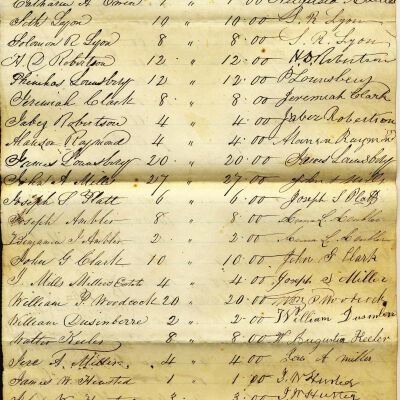 Catharine A. Owen 1 " 1
Seth Lyon 10 " 10 " S. R. Lyon
Solomon R Lyon 8 " 8 " S. R. Lyon
N. D Robertson 12 " 12 00 N D Robertson
Phinehas Lounsbery 12 " 12 00 P Lounsbery
Jeremiah Clark 8 " 8 00 Jeremiah Clark
Jabez Robertson 4 " 4 00 Jabez Robertson
Manson Raymond 4 " 4 00 Raymond
James Lounsbery 20 " 20 00 James Lounsbery
John A Mills 27 " 27.00
Joseph S Platt 6 " 6 00 Joseph S Platt
Joseph Ambler 8 " 8.00 L. Ambler
Benjamin S Ambler 2 " 2.00 L. Ambler
John G Clark 10 " 10.00 John G Clark
J. Mills Millers Estate 4 " 4.00 Joseph S Miller
William P. Woodcock 20 " 20.00 Wm P Woodcock
William Dusenberre 2 " 2.00 William
Walter Keeler 8 " 8 00 Augusta Keeler
A. Miller 4 " 4 00 A Miller
James W. Husted 1 " 1.00 J. W Husted
3 " 3.00 J W Husted